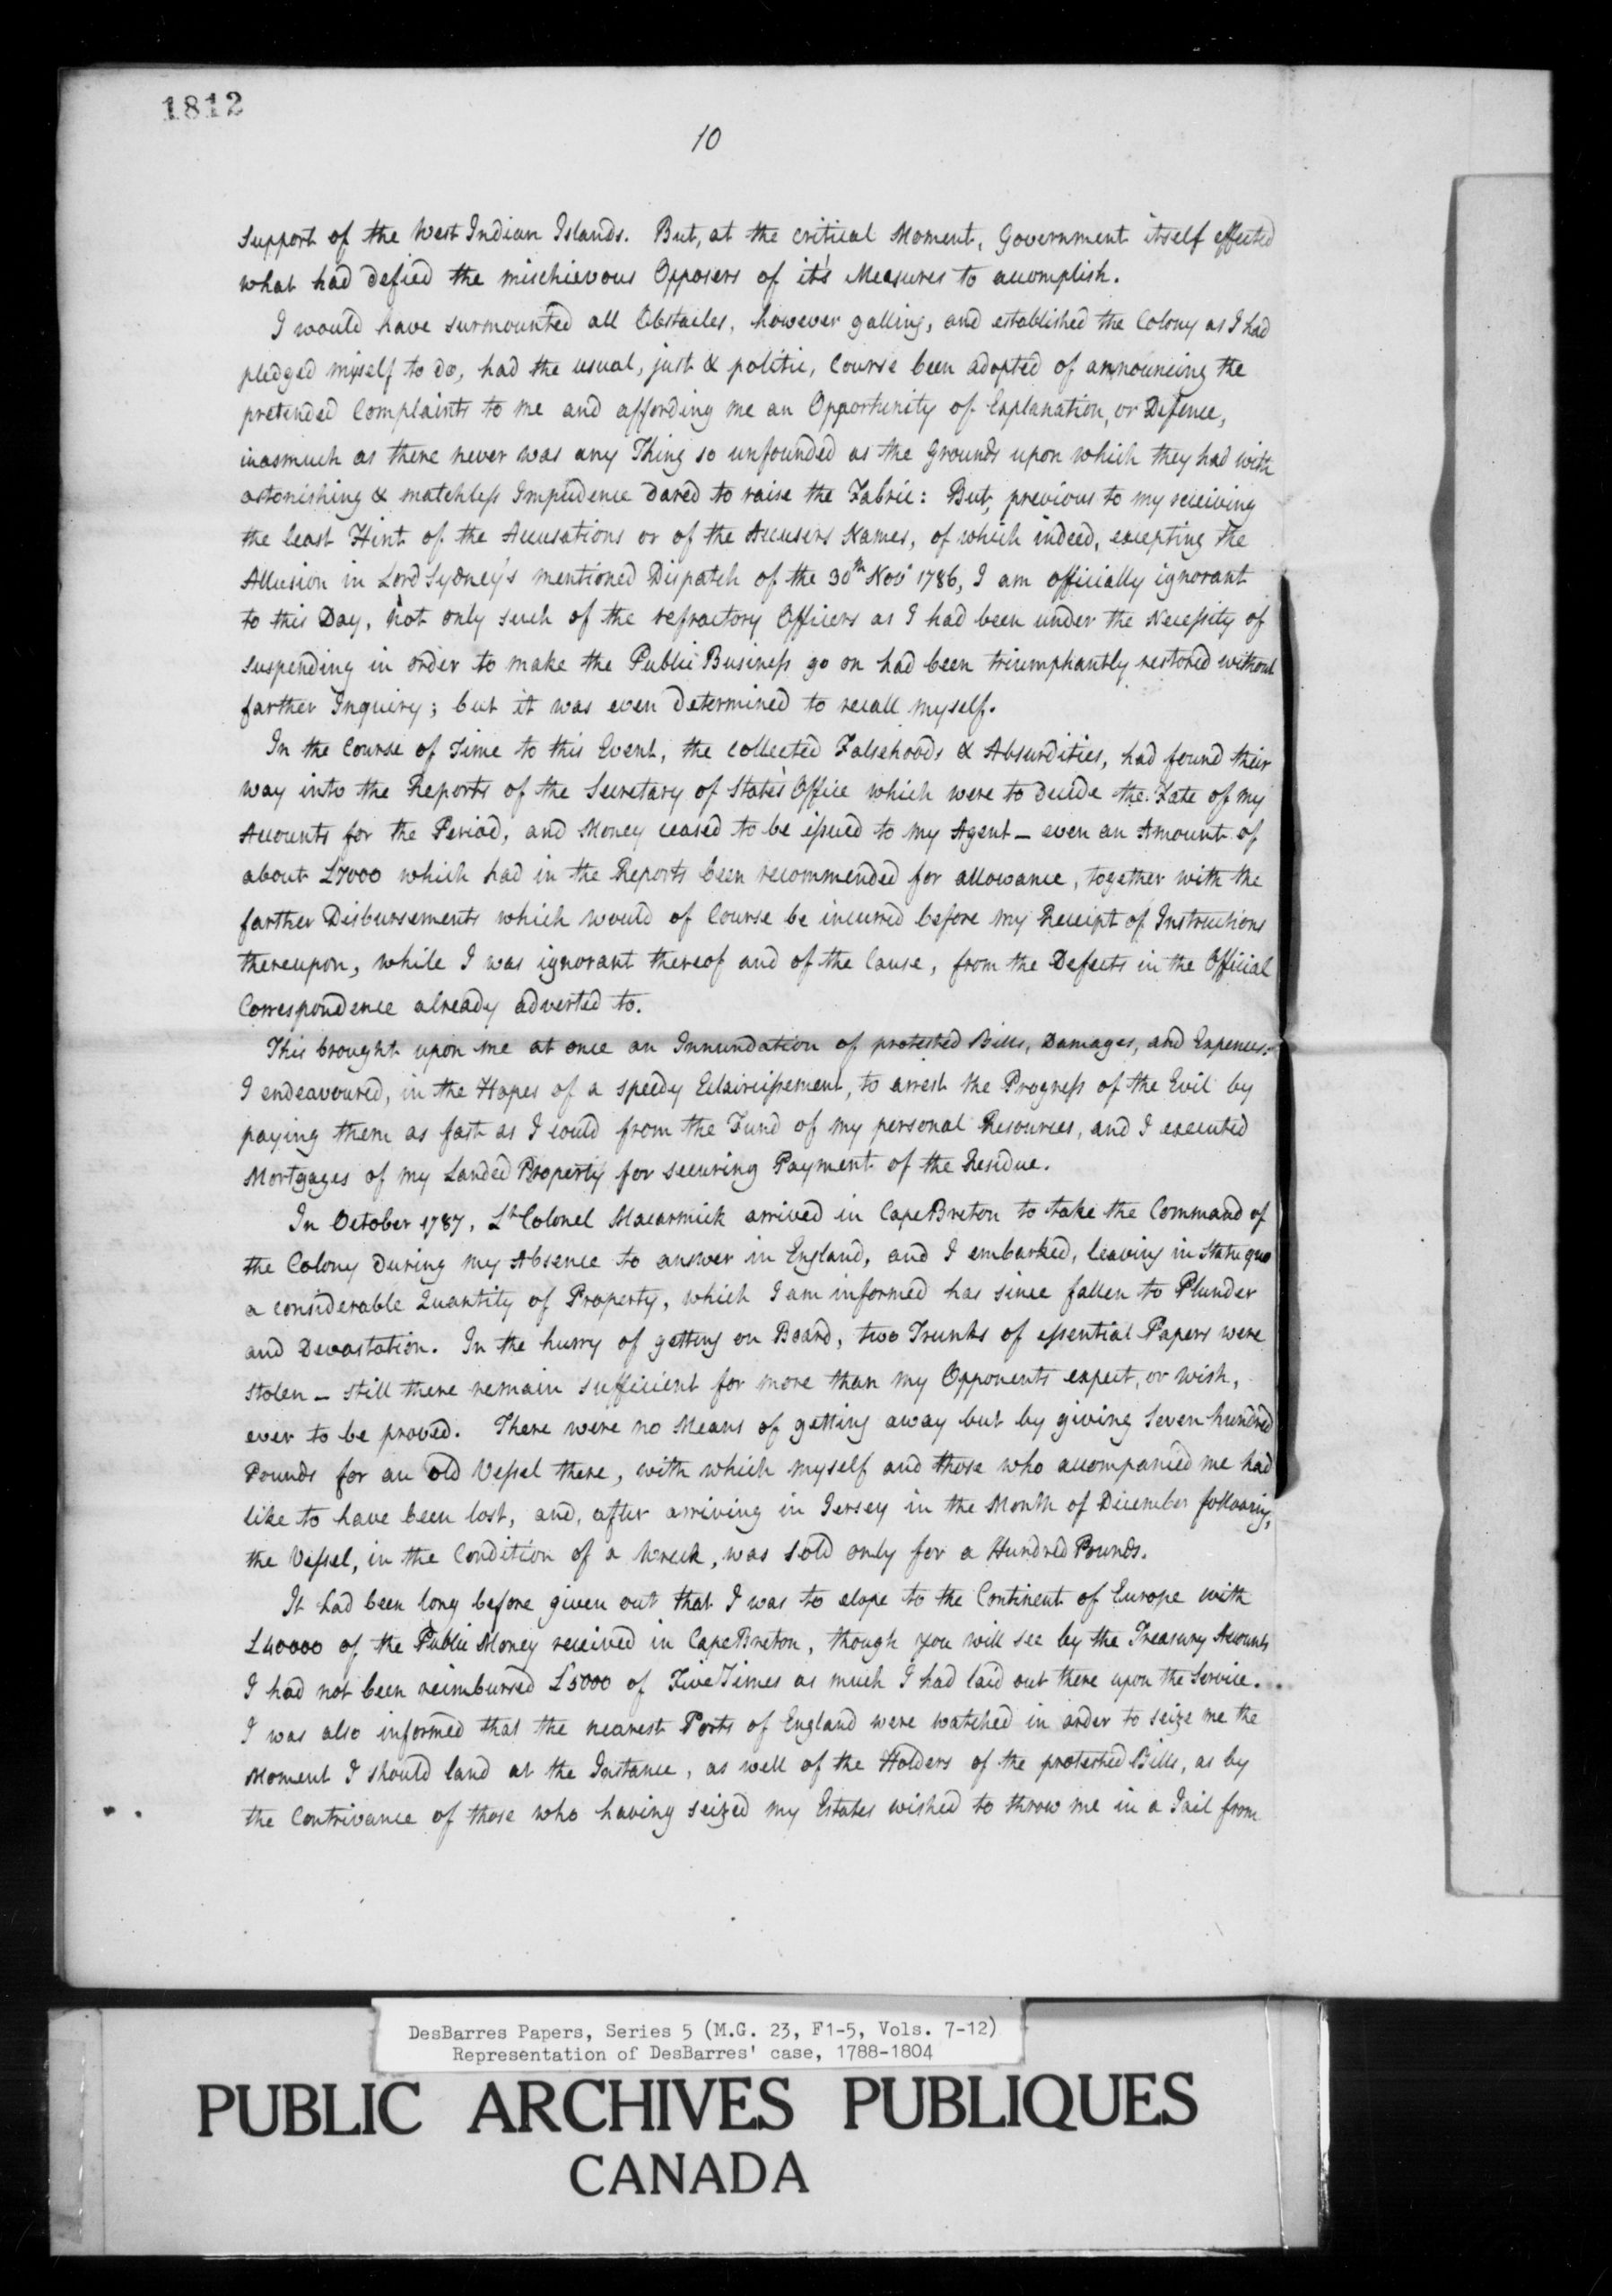 1812
10
support of the West Indian Islands. But, at the critical Moment, Government itself effected
what had defied the mischievous Opposers of it's Measures to accomplish.
I would have surmounted all Obstacles, however galling, and established the Colony as I had
pledged myself to do, had the usual, just & politic, Course been adopted of announcing the
pretended Complaints to me and affording me an Opportunity of Explanation, or Defence,
inasmuch as there never was any Thing so unfounded as the Grounds upon which they had with
astonishing & matchless Impudence dared to raise the Fabric: But, previous to my receiving
the least Hint of the Accusations or of the Accusers Names, of which indeed, excepting the
Allusion in Lord Sydney's mentioned Dispatch of the 30th Nov 1786, I am officially ignorant
to this Day, not only such of the refractory Officers as I had been under the Necessity of
suspending in order to make the Public Business go on had been triumphantly restored without
farther Inquiry; but it was even determined to recall myself.
In the Course of Time to this Event, the collected Falsehoods & Absurdities, had found their
way into the Reports of the Secretary of State's Office which were to decide the Fate of my
Accounts for the Period, and Money ceased to be issued to my Agent — even an Amount of
about £7000 which had in the Reports been recommended for allowance, together with the
farther Disbursements which would of Course be incurred before my Receipt of Instructions
thereupon, while I was ignorant thereof and of the Cause, from the Defects in the Official
Correspondence already adverted to.
This brought upon me at once an Innundation of protested Bills, Damages, and Expences.
I endeavoured, in the Hopes of a speedy Eclaircissement, to arrest the Progress of the Evil by
paying them as fast as I could from the Fund of my personal Resources, and I executed
Mortgages of my Landed Property for securing Payment of the Residue.
In October 1787, Lt Colonel Macarmick arrived in Cape Breton to take the Command of
the Colony During my Absence to answer in England, and I embarked, leaving in Statu quo
a considerable Quantity of Property, which I am informed has since fallen to Plunder
and Devastation. In the hurry of getting on Board, two Trunks of essential Papers were
stolen — still there remain sufficient for more than my Opponents expect, or wish,
ever to be proved. There were no Means of getting away but by giving Seven hundred
Pounds for an old Vessel there, with which myself and those who accompanied me had
like to have been lost, and, after arriving in Jersey in the Month of December following,
the Vessel, in the Condition of a Wreck, was sold only for a Hundred Pounds.
It had been long before given out that I was to elope to the Continent of Europe with
£40000 of the Public Money received in Cape Breton, though you will see by the Treasury Accounts
I had not been reimbursed £5000 of Five Times as much I had laid out there upon the Service.
I was also informed that the nearest Ports of England were watched in order to seize me the
Moment I should land at the Instance, as well of the Holders of the protested Bills, as by
the Contrivance of those who having seized my Estates wished to throw me in a Jail from
DesBarres Papers, Series 5 (M.G. 23, F1-5, Vols. 7-12)
Representation of DesBarres' case, 1788-1804
PUBLIC ARCHIVES PUBLIQUES
CANADA